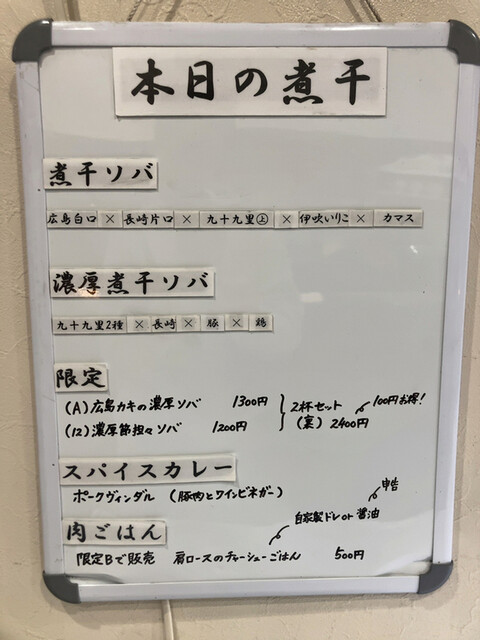 本日の煮干
煮干ソバ
広島白口 × 長崎片口 × 九十九里㊤ × 伊吹いりこ × カマス
濃厚煮干ソバ
九十九里2種 × 長崎 × 豚 × 鶏
限定
(A)広島カキの濃厚ソバ 1300円
(12)濃厚節担々ソバ 1200円
2杯セット 100円お得!
(裏) 2400円
スパイスカレー
ポークヴィンダル (豚肉とワインビネガー)
申告
肉ごはん
自家製ドレor醤油
限定Bで販売 肩ロースのチャーシューごはん 500円